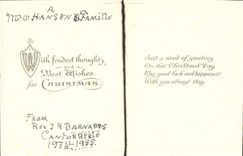 Mr & Mrs HANSEN & Family
With fondest thoughts
and
Best Wishes
for CHRISTMAS.
FROM
REV J R BARNABAS
1934-1935.
Just a word of greeting
On this Christmas Day.
May good luck and happiness
With you always stay.